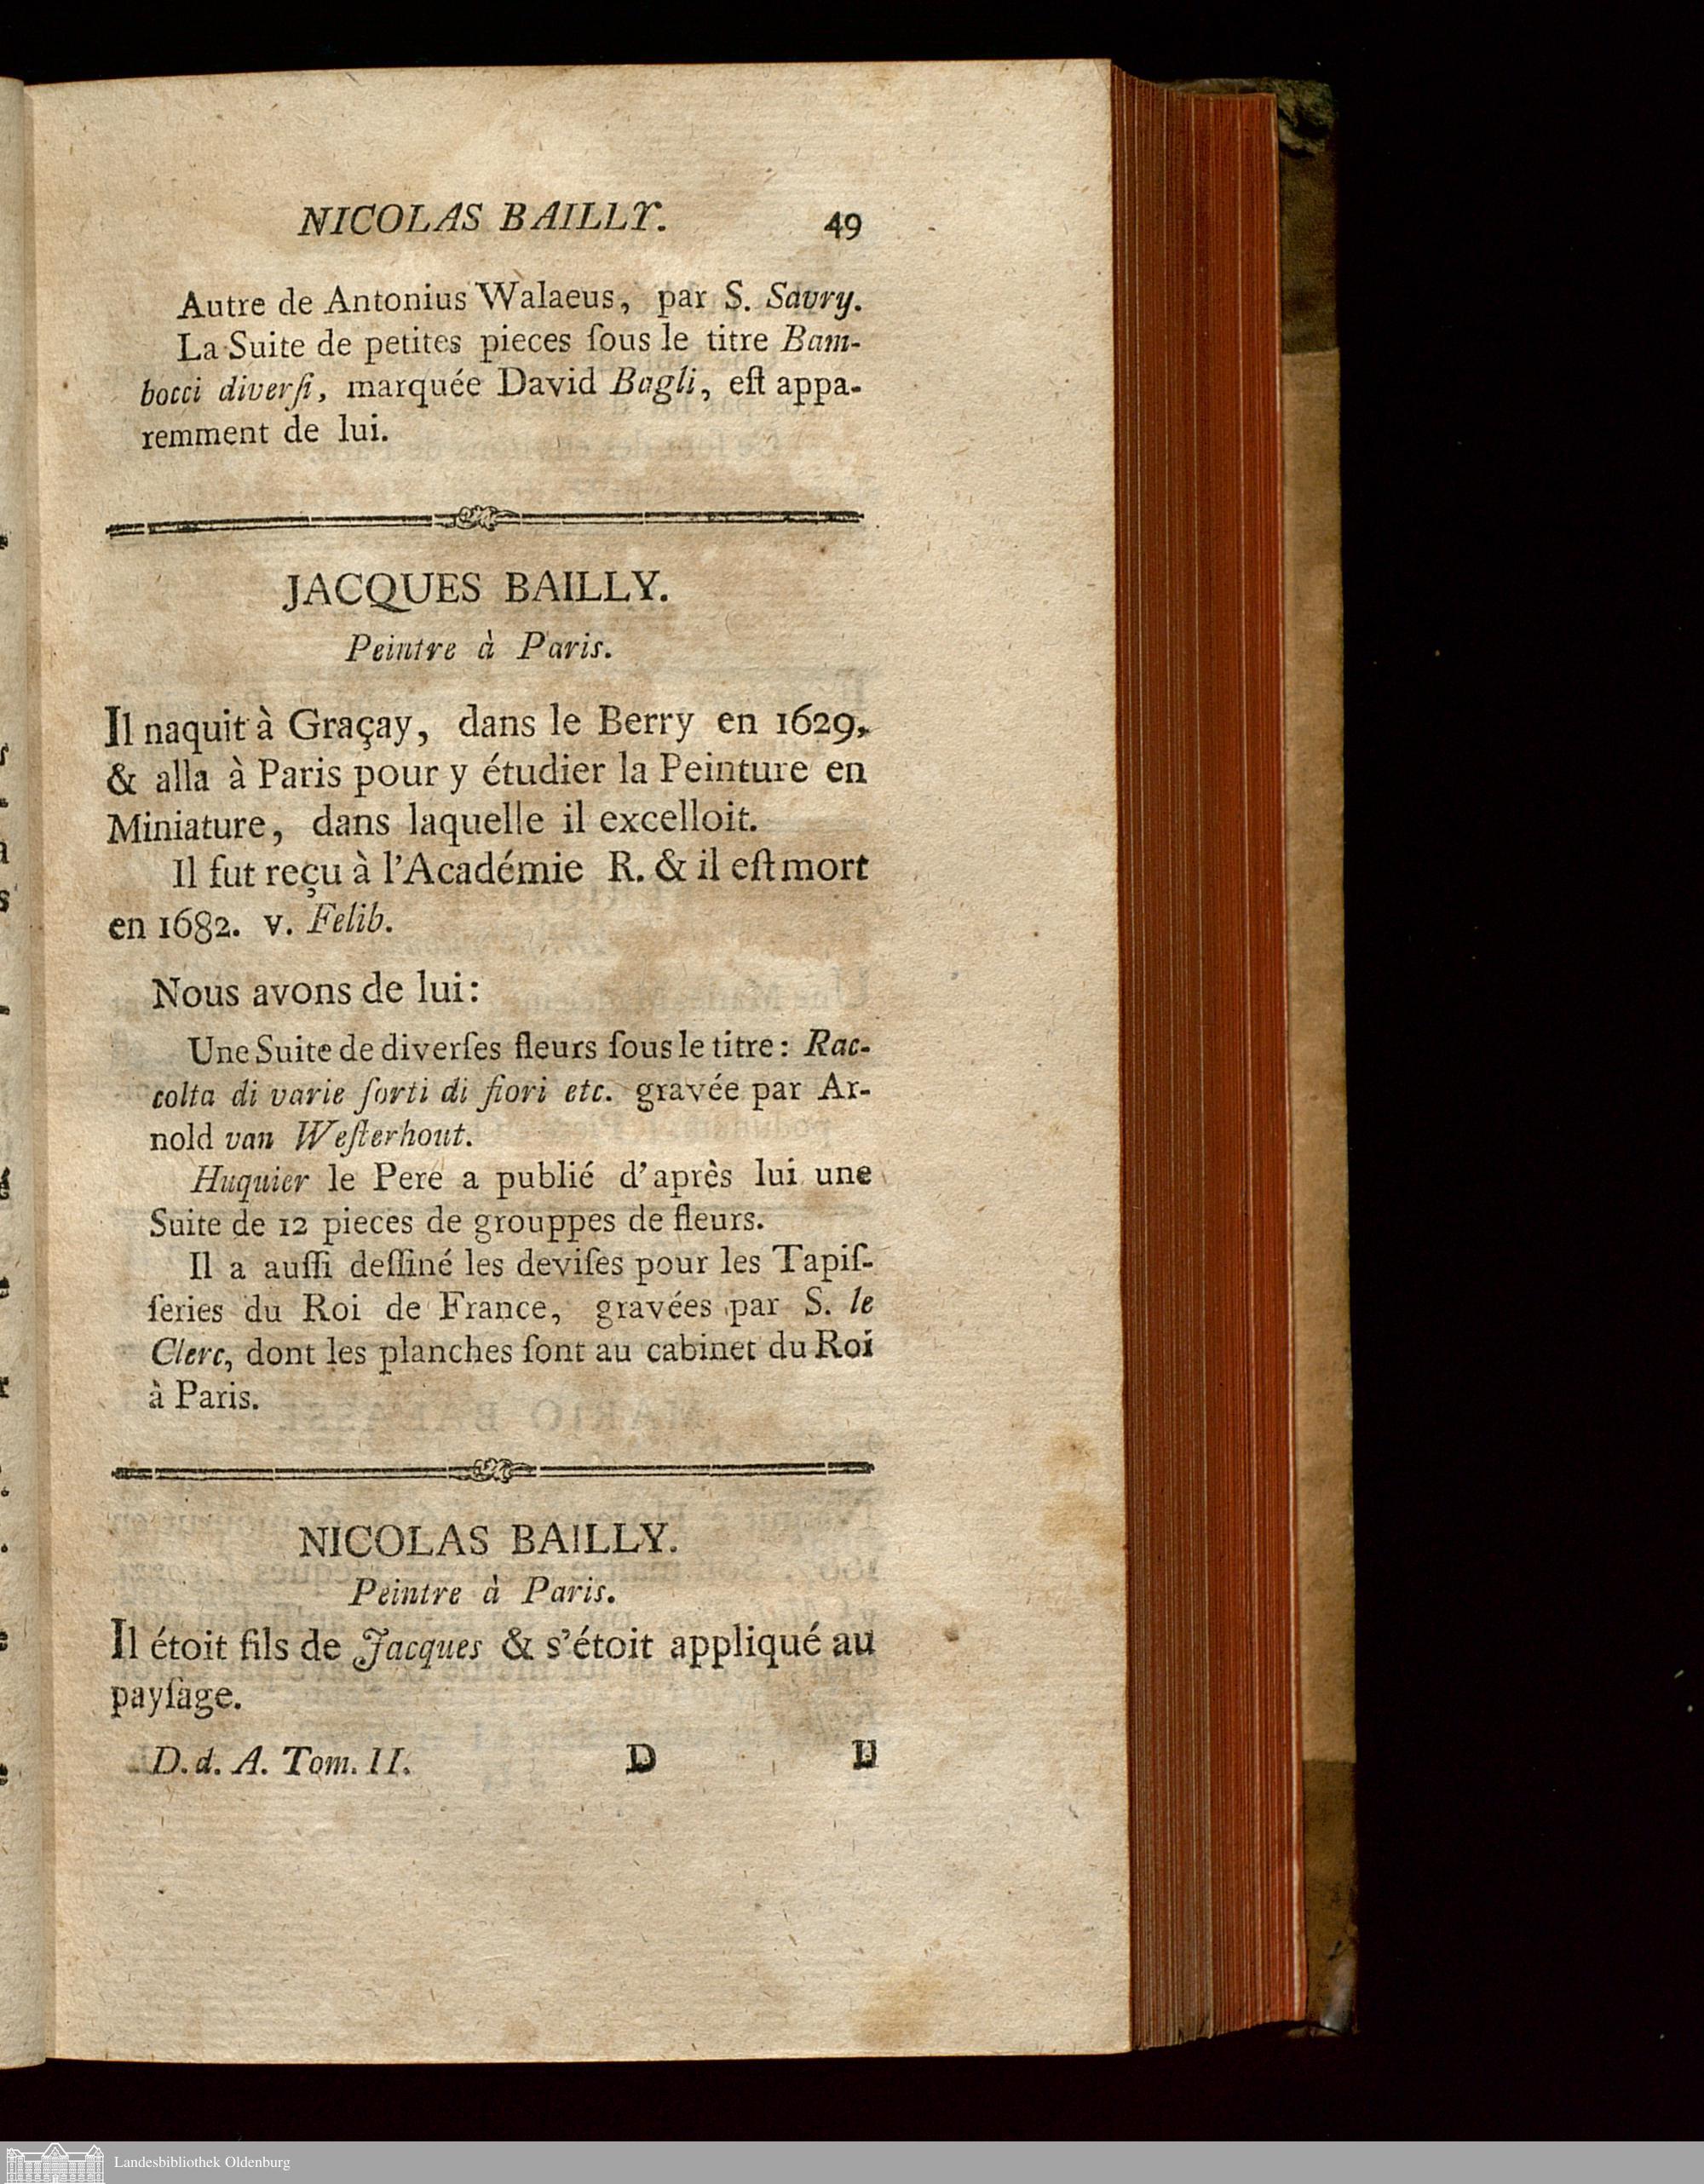 NICOLAS BAILLY. 49
Autre de Antonius Walaeus, par S. Savry.
La Suite de petites pieces ſous le titre Bam-
bocci diverſi, marquée David Bagli, eſt appa-
remment de lui.
JACQUES BAILLY.
Peintre à Paris.
Il naquit à Graçay, dans le Berry en 1629,
& alla à Paris pour y étudier la Peinture en
Miniature, dans laquelle il excelloit.
Il fut reçu à l'Académie R. & il eſt mort
en 1682. v. Felib.
Nous avons de lui:
Une Suite de diverſes fleurs ſous le titre: Rac-
colta di varie ſorti di fiori etc. gravée par Ar-
nold van Weſterhout.
Huquier le Pere a publié d'après lui une
Suite de 12 pieces de grouppes de fleurs.
Il a auſſi deſſiné les deviſes pour les Tapiſ-
ſeries du Roi de France, gravées par S. le
Clerc, dont les planches ſont au cabinet du Roi
à Paris.
NICOLAS BAILLY.
Peintre à Paris.
Il étoit fils de Jacques & s'étoit appliqué au
payſage.
D. d. A. Tom. II. D Il
Landesbibliothek Oldenburg